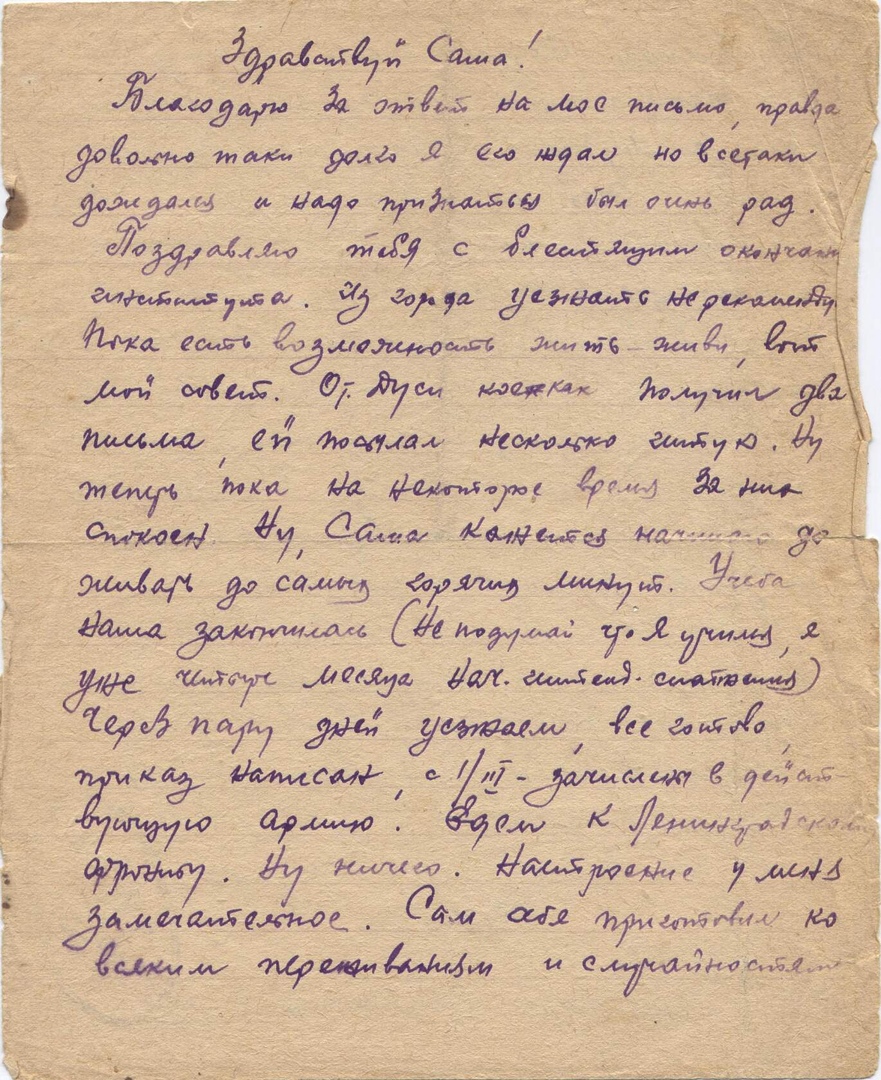 Здравствуй Саша!
Благодарю за ответ на мое письмо, правда
довольно таки долго я его ждал но всетаки
дождался и надо признаться был очень рад.
Поздравляю тебя с блестящим окончани
института. Из города уезжать не рекоменду
Пока есть возможность жить – живи, вот
мой совет. От Дуси кое-как получил два
письма, ей посылал несколько штук. Ну
теперь пока на некоторое время за них
спокоен. Ну, Саша кажется начинаю до
живать до самых горячих минут. Учеба
наша закончилась (Не подумай что я учился, я
уже четыре месяца нач. интенд. снабжения)
Через пару дней уезжаем, все готово,
приказ написан, с 1/III – зачислен в дейст-
вующую армию. Едем к Ленинградскому
фронту. Ну ничего. Настроение у меня
замечательное. Сам себя приготовил ко
всяким переживаниям и случайностям